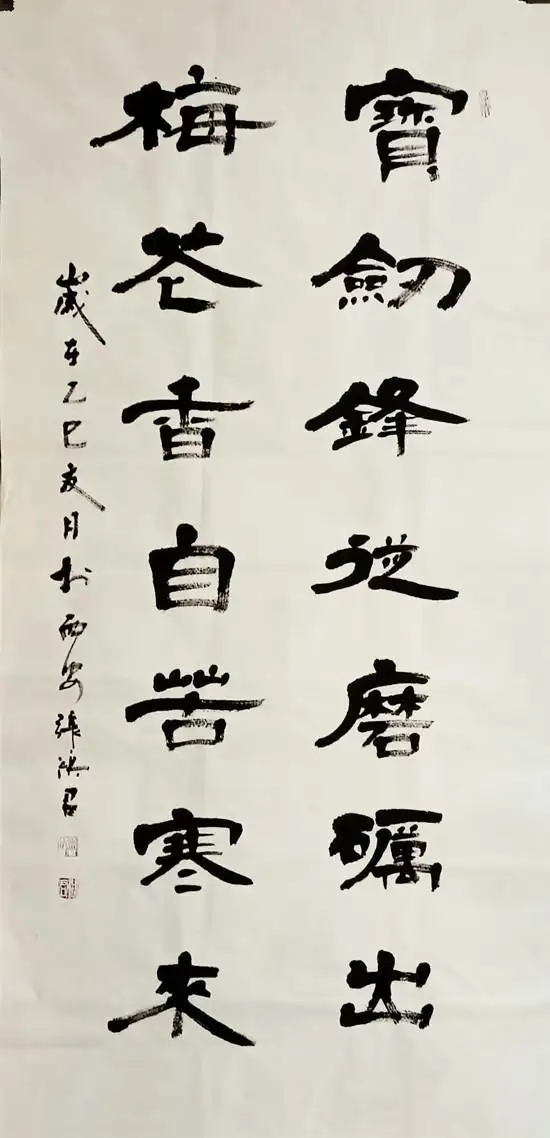 寶劒鋒從磨礪出
梅花香自苦寒來
歲在乙巳夏月於西安張洪君